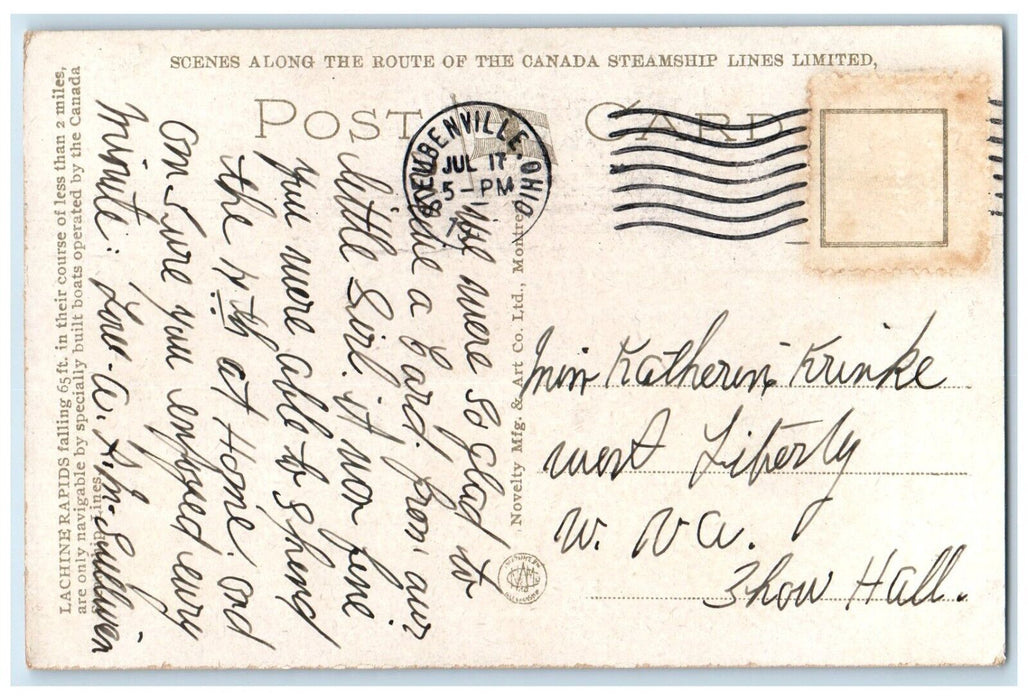 SCENES ALONG THE ROUTE OF THE CANADA STEAMSHIP LINES LIMITED,
POST CARD
STEUBENVILLE, OHIO
JUL 17
5-PM
LACHINE RAPIDS falling 65 ft. in their course of less than 2 miles,
are only navigable by specially built boats operated by the Canada
Steamship Lines.
Novelty Mfg. & Art Co. Ltd., Montreal
we were so glad to
a Card. from our
little Girl. it was fine
you were able to spend
the at Home. and
am Sure you enjoyed every
minute. Love
Miss Katherine Krinke
West Liberty
W. Va.
Show Hall.